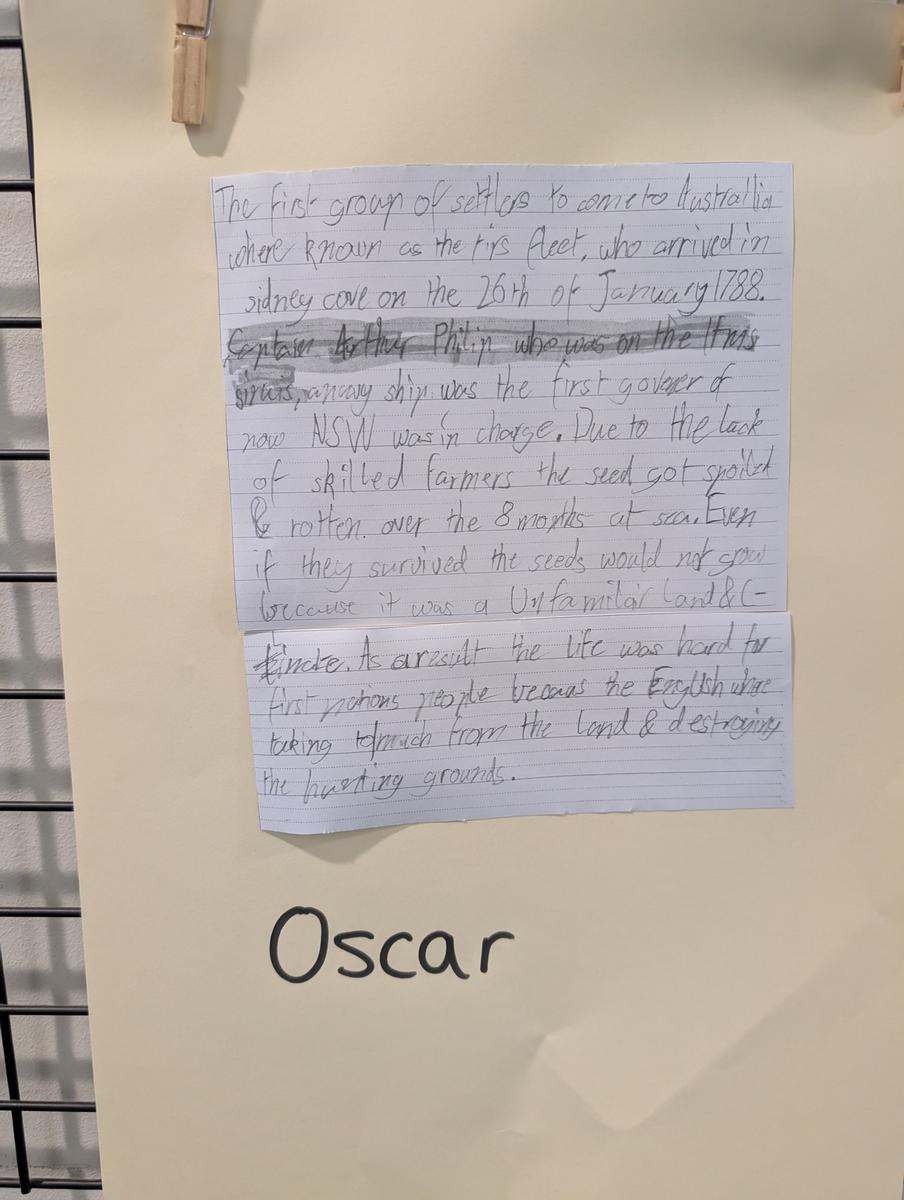 The first group of settlers to come to Australlia
where known as the firs fleet, who arrived in
sidney cove on the 26th of January 1788.
Captain Arthur Philip who was on the Hms
sirius, anavy ship was the first goverer of
now NSW was in charge. Due to the lack
of skilled farmers the seed got spoiled
& rotten. over the 8 moths at sea. Even
if they survived the seeds would not grow
because it was a Unfamilair Land & C-
limate. As aresult the life was hard for
first nations people becaus the English where
taking to much from the land & destroying
the hunting grounds.
Oscar